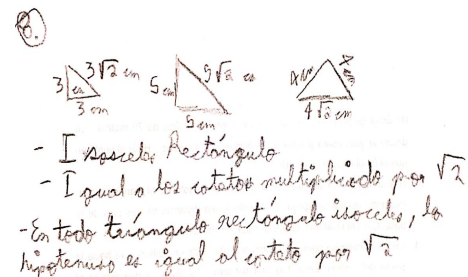 8.
3 3√2 cm 5 cm 5√2 cm x cm x cm
3 cm 5 cm 4√2 cm
- Isosceles Rectángulo
- Igual a los catetos multiplicado por √2
- En todo triángulo rectángulo isoceles, la
hipotenusa es igual al cateto por √2